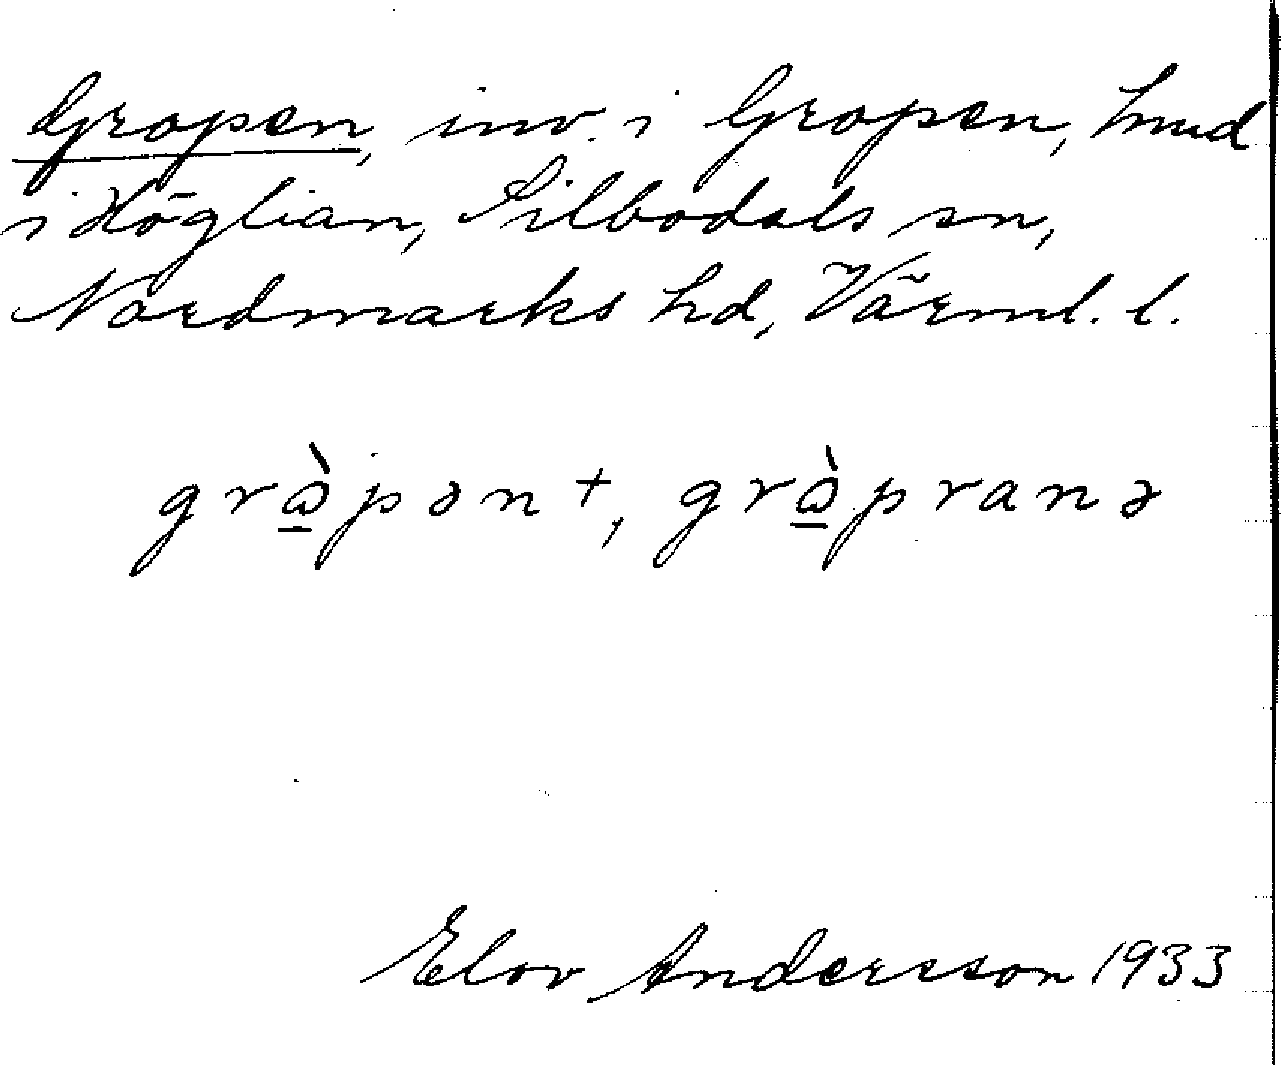 Gropen, inv. i Gropen, hmd
i Höglian, Silbodals sn,
Nordmarks hd, Värml. l.
grɷ̠̀pən +, grɷ̠̀pranə
Elov Andersson 1933